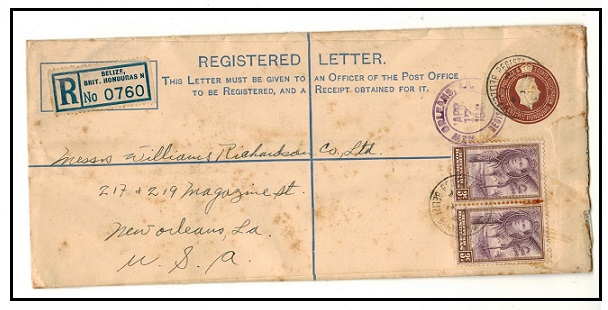 REGISTERED LETTER.
THIS LETTER MUST BE GIVEN TO AN OFFICER OF THE POST OFFICE
TO BE REGISTERED, AND A RECEIPT OBTAINED FOR IT.
BELIZE,
BRIT. HONDURAS N
R No 0760
NEW ORLEANS,
APR
Messrs Williams Richardson Co, Ltd.
217 & 219 Magazine St.
New Orleans, La.
U. S. A.
3c
3c